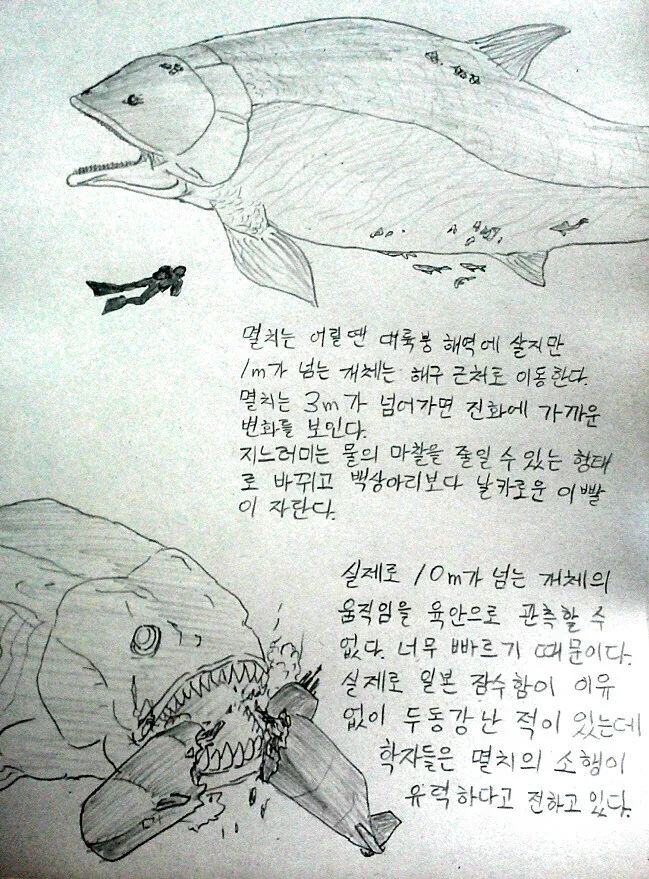 멸치는 어릴땐 대륙붕 해역에 살지만
1m가 넘는 개체는 해구 근처로 이동한다.
멸치는 3m가 넘어가면 진화에 가까운
변화를 보인다.
지느러미는 물의 마찰을 줄일 수 있는 형태
로 바뀌고 백상아리보다 날카로운 이빨
이 자란다.
실제로 10m가 넘는 개체의
움직임을 육안으로 관측할 수
없다. 너무 빠르기 때문이다.
실제로 일본 잠수함이 이유
없이 두동강 난 적이 있는데
학자들은 멸치의 소행이
유력하다고 전하고 있다.